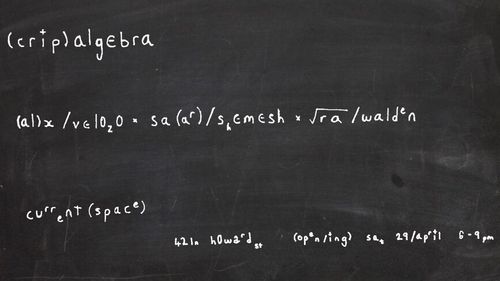 (crip)algebra
(al)x /v∈l0z0 * sa(ar)/sh∈m∈sh * √ra/walden
current(space)
421n h0ward st (open/ing) sat 29/april 6-9pm